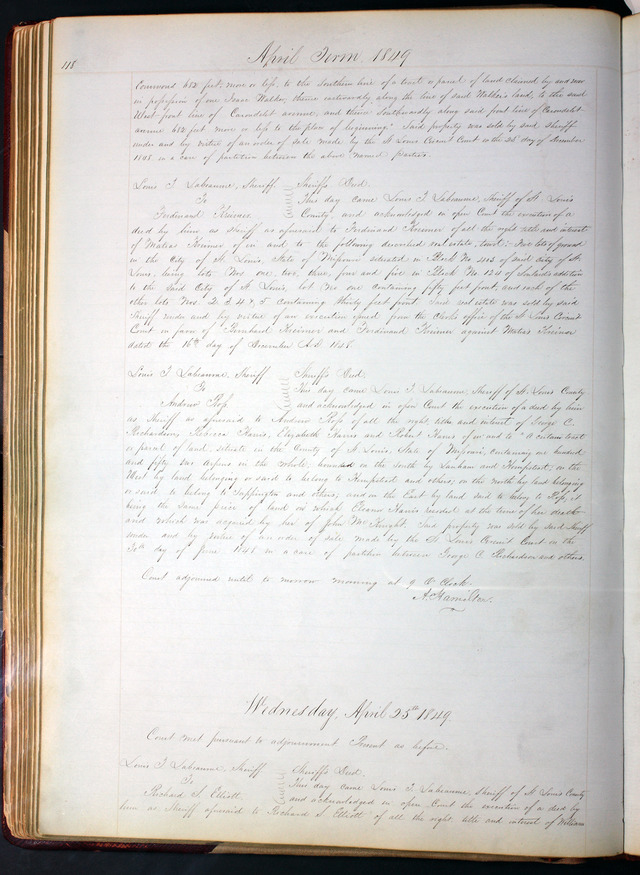 118
April Term 1849
Commons 682 feet, more or less, to the Southern line of a tract or parcel of land claimed by and now
in possession of one Isaac Walker, thence eastwardly along the line of said Walker's land, to the said
West front line of Carondelet avenue, and thence Southwardly along said front line of Carondelet
avenue 682 feet more or less to the place of beginning." Said property was sold by said Sheriff
under and by virtue of an order of sale made by the St Louis Circuit Court on the day of November
1848 in a case of partition between the above named parties.
Louis T. Labeaume, Sheriff. Sheriffs Deed.
To This day came Louis T. Labeaume, Sheriff of St Louis
Ferdinand County, and acknowledged in open Court the execution of a
deed by him as Sheriff as aforesaid to Ferdinand of all the right title and interest
of Matias of in and to the following described real estate, towit: Five lots of ground
in the City of St Louis, State of Missouri situated in Block No of said city of St
Louis, being lots Nos one, two, three, four and five in Block No 124 of addition
to the said City of St Louis, lot No one containing fifty feet front, and each of the
other lots Nos. 2. 3. 4 & 5 containing thirty feet front. Said real estate was sold by said
Sheriff under and by virtue of an execution issued from the clerks office of the St Louis Circuit
Court in favor of Bernhard and Ferdinand against Matias
dated the 16th day of December A.D 1848.
Louis T. Labeaume, Sheriff Sheriffs Deed.
To This day came Louis T. Labeaume, Sheriff of St. Louis County
Andrew Ross. and acknowledged in open Court the execution of a deed by him
as Sheriff as aforesaid to Andrew Ross of all the right, title and interest of George C.
Richardson, Rebecca Harris, Elizabeth Harris and Robert Harris of in and to "A certain tract
or parcel of land, situate in the County of St Louis, State of Missouri, containing one hundred
and fifty six arpens in the whole, bounded on the South by Lanham and Hempstead, on the
West by land belonging or said to belong to Hempstead and others, on the North by land belonging
or said to belong to Sappington and others, and on the East by land said to belong to Ross, it
being the same piece of land on which Eleanor Harris resided at the time of her death
and which was acquired by her of John McKnight. Said property was sold by said Sheriff
under and by virtue of an order of sale made by the St Louis Circuit Court on the
day of June 1848 in a case of partition between George C. Richardson and others.
Court adjourned until to morrow morning at 9 O Clock.
A. Hamilton.
Wednesday, April 25th 1849.
Court met pursuant to adjournment Present as before.
Louis T. Labeaume, Sheriff Sheriffs Deed.
To This day came Louis T. Labeaume, Sheriff of St Louis County
Richard S. Elliott. and acknowledged in open Court the execution of a deed by
him as Sheriff aforesaid to Richard S. Elliott of all the right, title and interest of William